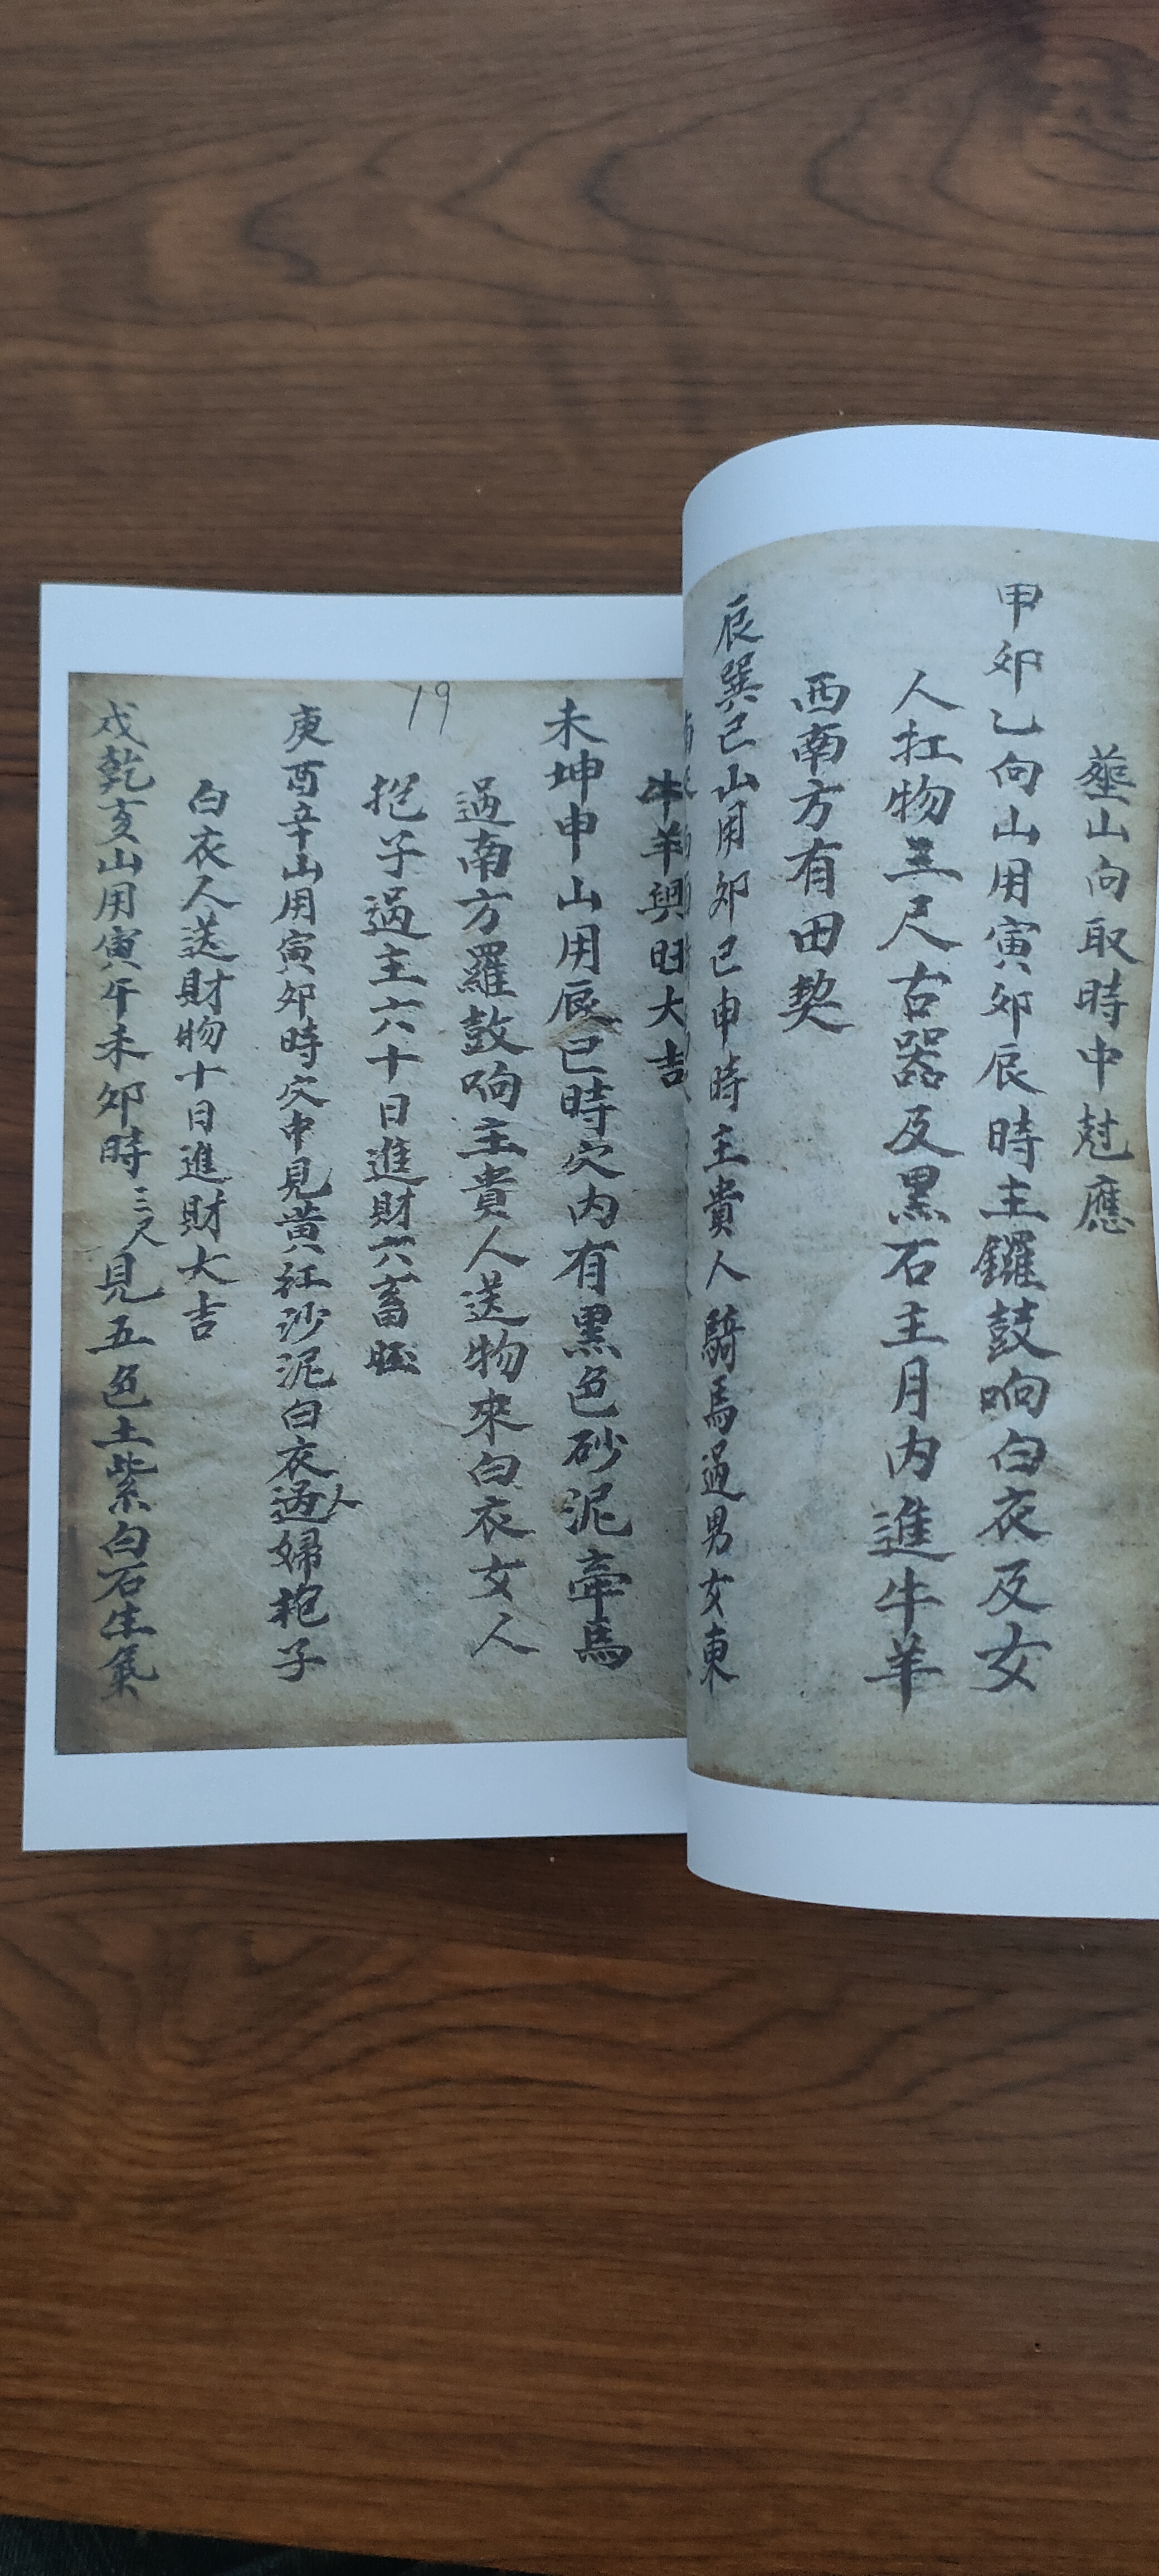 葬山向取時中尅應
甲卯乙向山用寅卯辰時主鑼鼓响白衣及女
人扛物三尺古器及黑石主月内進牛羊
西南方有田契
辰巽己山用卯已申時主貴人騎馬過男女東
牛羊興旺大吉
未坤申山用辰已時穴内有黑色砂泥牽馬
過南方羅鼓响主貴人送物來白衣女人
抱子過主六十日進財六畜旺
19
庚酉辛山用寅卯時穴中見黃紅沙泥白衣人过婦抱子
白衣人送財物十日進財大吉
戌乾亥山用寅午未卯時三尺見五色土紫白石生氣